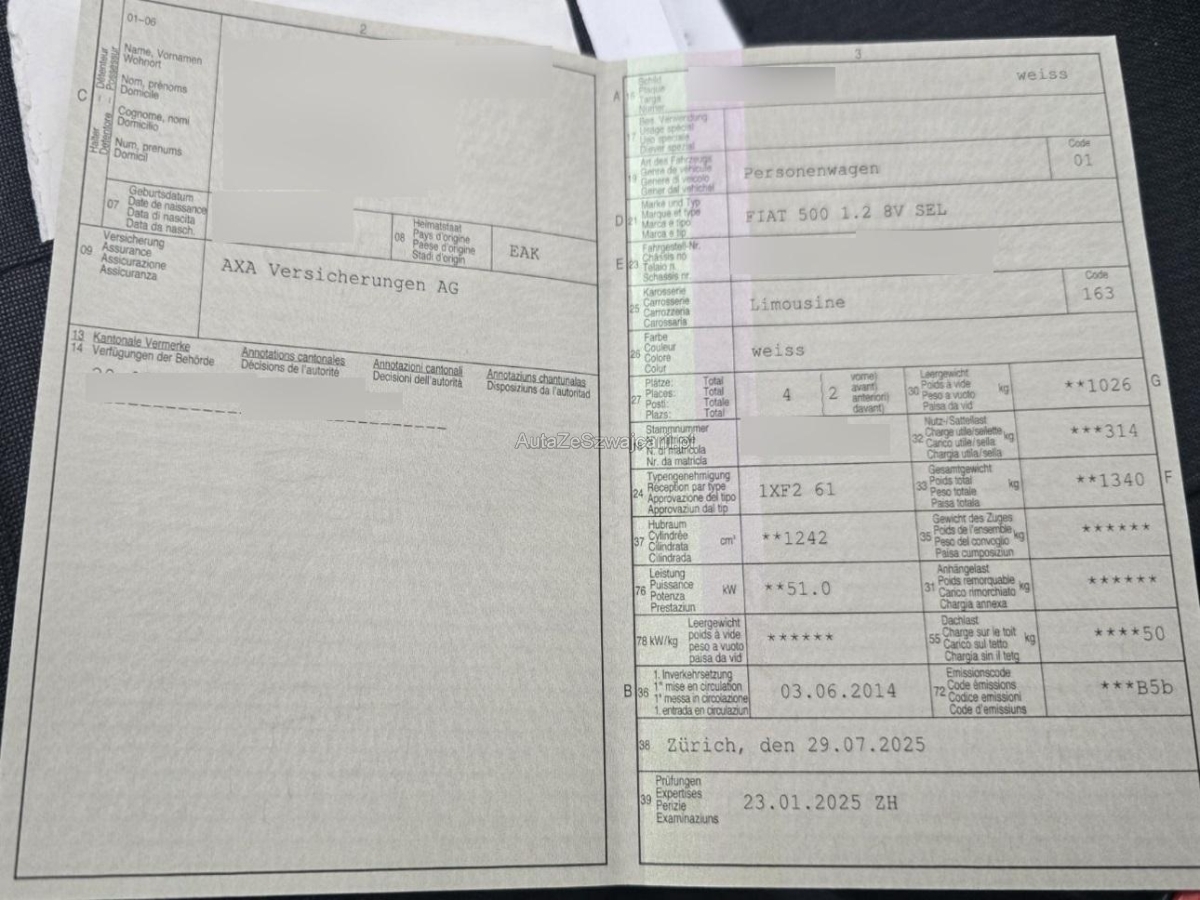 2
01-06
C
Halter - Détenteur
Detentore - Possessur
Name, Vornamen
Wohnort
Nom, prénoms
Domicile
Cognome, nomi
Domicilio
Num, prenums
Domicil
07
Geburtsdatum
Date de naissance
Data di nascita
Data da nasch.
08
Heimatstaat
Pays d'origine
Paese d'origine
Stadi d'origin
EAK
09
Versicherung
Assurance
Assicurazione
Assicuranza
AXA Versicherungen AG
13 Kantonale Vermerke
14 Verfügungen der Behörde
Annotations cantonales
Décisions de l'autorité
Annotazioni cantonali
Decisioni dell'autorità
Annotaziuns chantunalas
Disposiziuns da l'autoritad
3
A
Schild
Plaque
Targa
Numer
weiss
17
Bes. Verwendung
Usage spécial
Uso speciale
Diever spezial
19
Art des Fahrzeugs
Genre de véhicule
Genere di veicolo
Gener dal vehichel
Personenwagen
Code
01
D 21
Marke und Typ
Marque et type
Marca e tipo
Marca e tip
FIAT 500 1.2 8V SEL
E 23
Fahrgestell-Nr.
Châssis no
Telaio n.
Schassis nr.
25
Karosserie
Carrosserie
Carrozzeria
Carossaria
Limousine
Code
163
26
Farbe
Couleur
Colore
Colur
weiss
27
Plätze: Total
Places: Total
Posti: Totale
Plazs: Total
4
2
vorne)
avant)
anteriori)
davant)
30
Leergewicht
Poids à vide
Peso a vuoto
Paisa da vid
kg
**1026
G
Stammnummer
N. di matricola
Nr. da matricla
32
Nutz-/Sattellast
Charge utile/sellette
Carico utile/sella
Chargia utila/sella
kg
***314
24
Typengenehmigung
Réception par type
Approvazione del tipo
Approvaziun dal tip
1XF2 61
33
Gesamtgewicht
Poids total
Peso totale
Paisa totala
kg
**1340
F
37
Hubraum
Cylindrée
Cilindrata
Cilindrada
cm³
**1242
35
Gewicht des Zuges
Poids de l'ensemble
Peso del convoglio
Paisa cumposiziun
kg
******
76
Leistung
Puissance
Potenza
Prestaziun
kW
**51.0
31
Anhängelast
Poids remorquable
Carico rimorchiato
Chargia annexa
kg
******
78 kW/kg
Leergewicht
poids à vide
peso a vuoto
paisa da vid
******
55
Dachlast
Charge sur le toit
Carico sul tetto
Chargia sin il tetg
kg
****50
B 36
1. Inverkehrsetzung
1re mise en circulation
1a messa in circolazione
1. entrada en circulaziun
03.06.2014
72
Emissionscode
Code émissions
Codice emissioni
Code d'emissiuns
***B5b
38
Zürich, den 29.07.2025
39
Prüfungen
Expertises
Perizie
Examinaziuns
23.01.2025 ZH
AutaZeSzwajcarii.pl